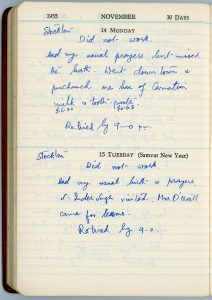 1955 NOVEMBER 30 DAYS
Stockton 14 MONDAY
Did not work.
Said my usual prayers but missed
the bath. Went down town &
purchased one box of Carnation
milk & tooth paste
$6.00 $0.63
Retired by 9-0 p.m.
Stockton 15 TUESDAY (Samvat New Year)
Did not work.
Said my usual bath & prayers
S. Inder Singh visited. Mrs. O'Neill
came for lessons.
Retired by 9-0.